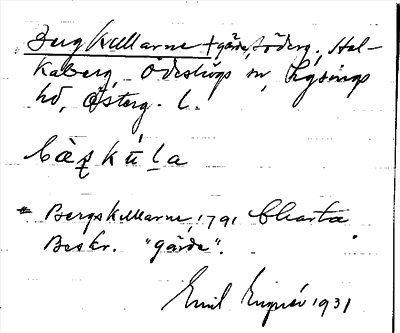 Bergkullarne † gärde, Söderg. Hal-
kaberg, Ödeshögs sn, Lysings
hd, Österg. l.
bæ̀ʐkúla
Bergskullarne, 1791 Charta
Beskr. "gärde".
Emil 1931